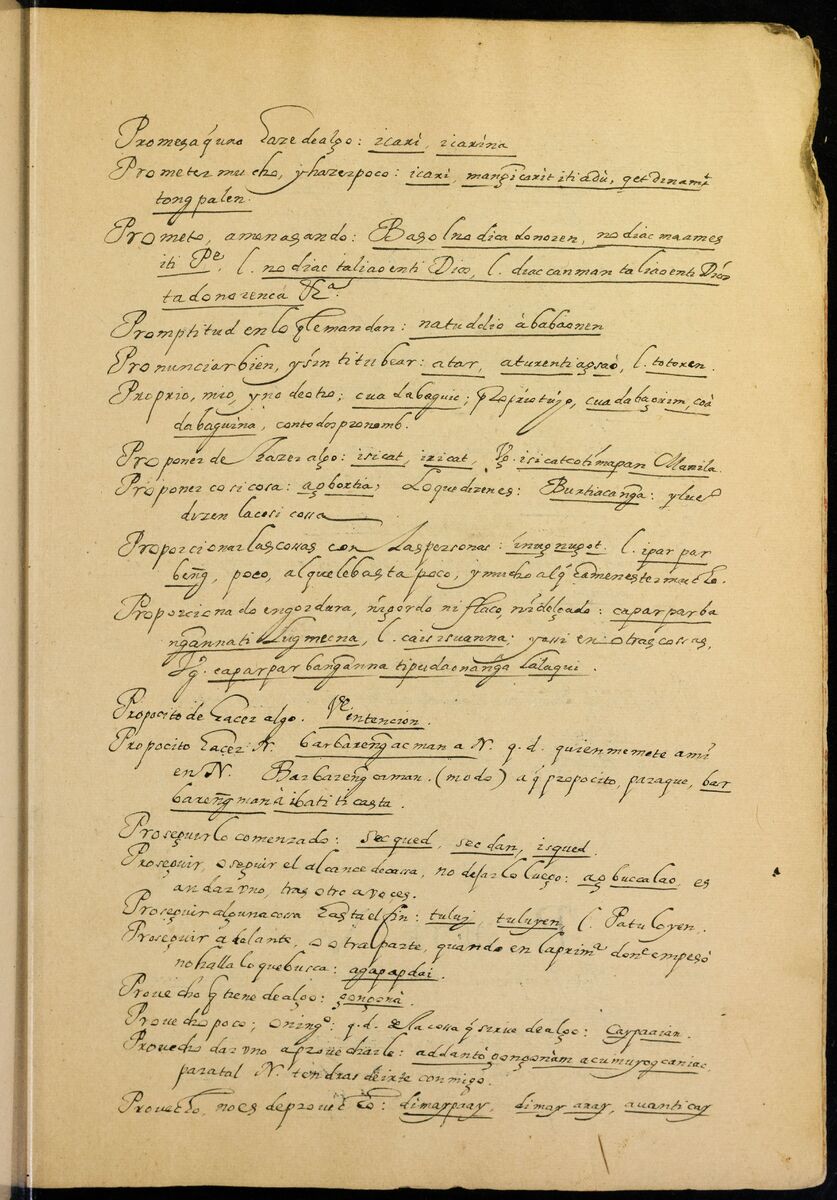 Promesa q̃ uno haze de algo: icari, icarina
Prometer mucho, y hazer poco: icari, mangicarit iti adù, qet dinamt
tongpalen.
Prometo, amenasando: Basol no dica donoren, no diac maames
iti Pe, l. no diac taliaoenti Dios, l. diac canman taliaoenti Dios
ta donorencà &a.
Promptitud en lo q̃ le mandan: natuddio à babaonen
Pronunciar bien, y sin titubear: atar, aturentiagsaò, l. totoren.
Proprio, mio, y no de otro; cua dabaguic; Proprio tuyo, cuadabagrim, coà
dabaguina, con todos pronomb.
Proponer de hazer algo: isicat, iricat, Vg. isicatcotimapan Manila.
Proponer cosicosa: agbortia; Lo que dizenes: Burtiacanga: y lue
dizen la cosi cossa
Proporcionar las cossas con las personas: inugnugot. l. iparpar
beng, poco, al que le basta poco, y mucho al q̃ ha menester mucho.
Proporcionado en gordura, ni gordo ni flaco, ni delgado: caparparba
ngannati lugmecna, l. caisisuanna; y assi en otras cossas,
Vg. caparparbanganna tipudaonanga lalaqui.
Proposito de hacer algo. Ve intencion.
Proposito hacer N. barbarengacman a N. q.d. quien me mete a mi
en N. Barbarengcaman. (modo) a q̃ proposito, paraque, bar
barengmanà ibati ti casta.
Proseguir lo comenzado: secqued, secdan, isqued.
Proseguir, o seguir el alcance de cassa, no dejarlo luego: agbuccalao, es
andar vno, tras otro a voces.
Proseguir alguna cossa hasta el fin: tuluy, tuluyen, l. Patuloyen.
Proseguir adelante, o otra parte, quando en la primᵃ donᵉ empesó
no halla lo que busca: agapapdai.
Prouecho q̃ tiene de algo: gongonà.
Prouecho poco; o ningº: q.d. de la cossa q̃ sirue de algo: Caypaaian.
Prouecho dar vno aprouecharle: addantógongonàm acumuyogcaniac,
para tal N. tendras de irte conmigo.
Prouecho, no es de prouecho: dimaypaay, dimay aray, auanticay